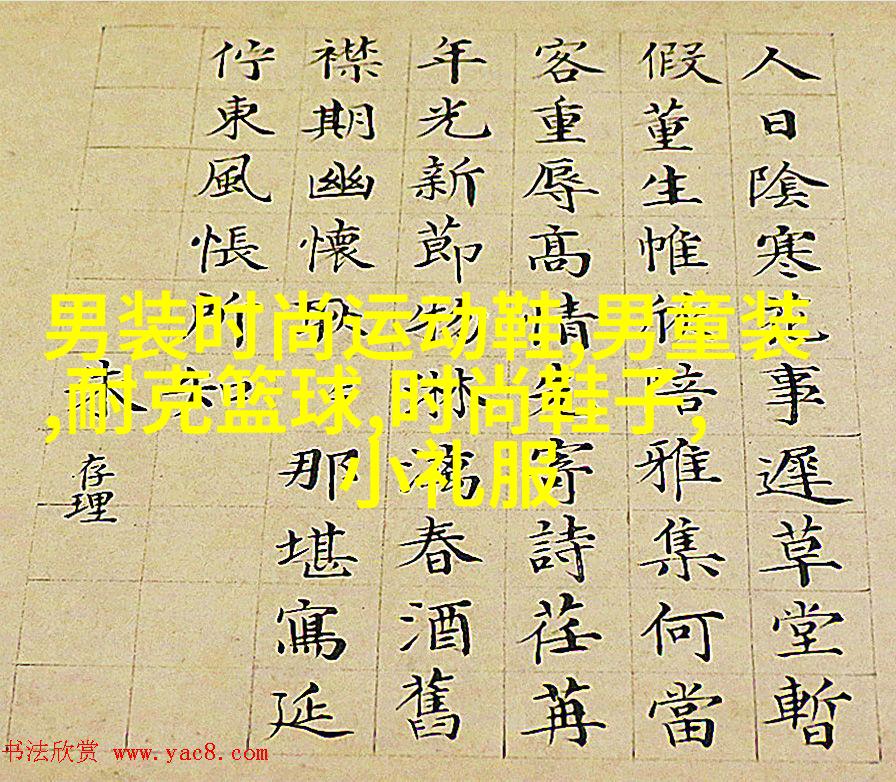 人日陰寒花事遲草堂暫
假董生帷欣陪雅集何當
客重辱高情先寄詩荏苒
年光新節物淋漓春酒舊
襟期幽懷那堪寫延
佇東風悵所知
存理
男装时尚运动鞋,男童装
,耐克篮球,时尚鞋子,
小礼服
书法欣赏 www.yac8.com